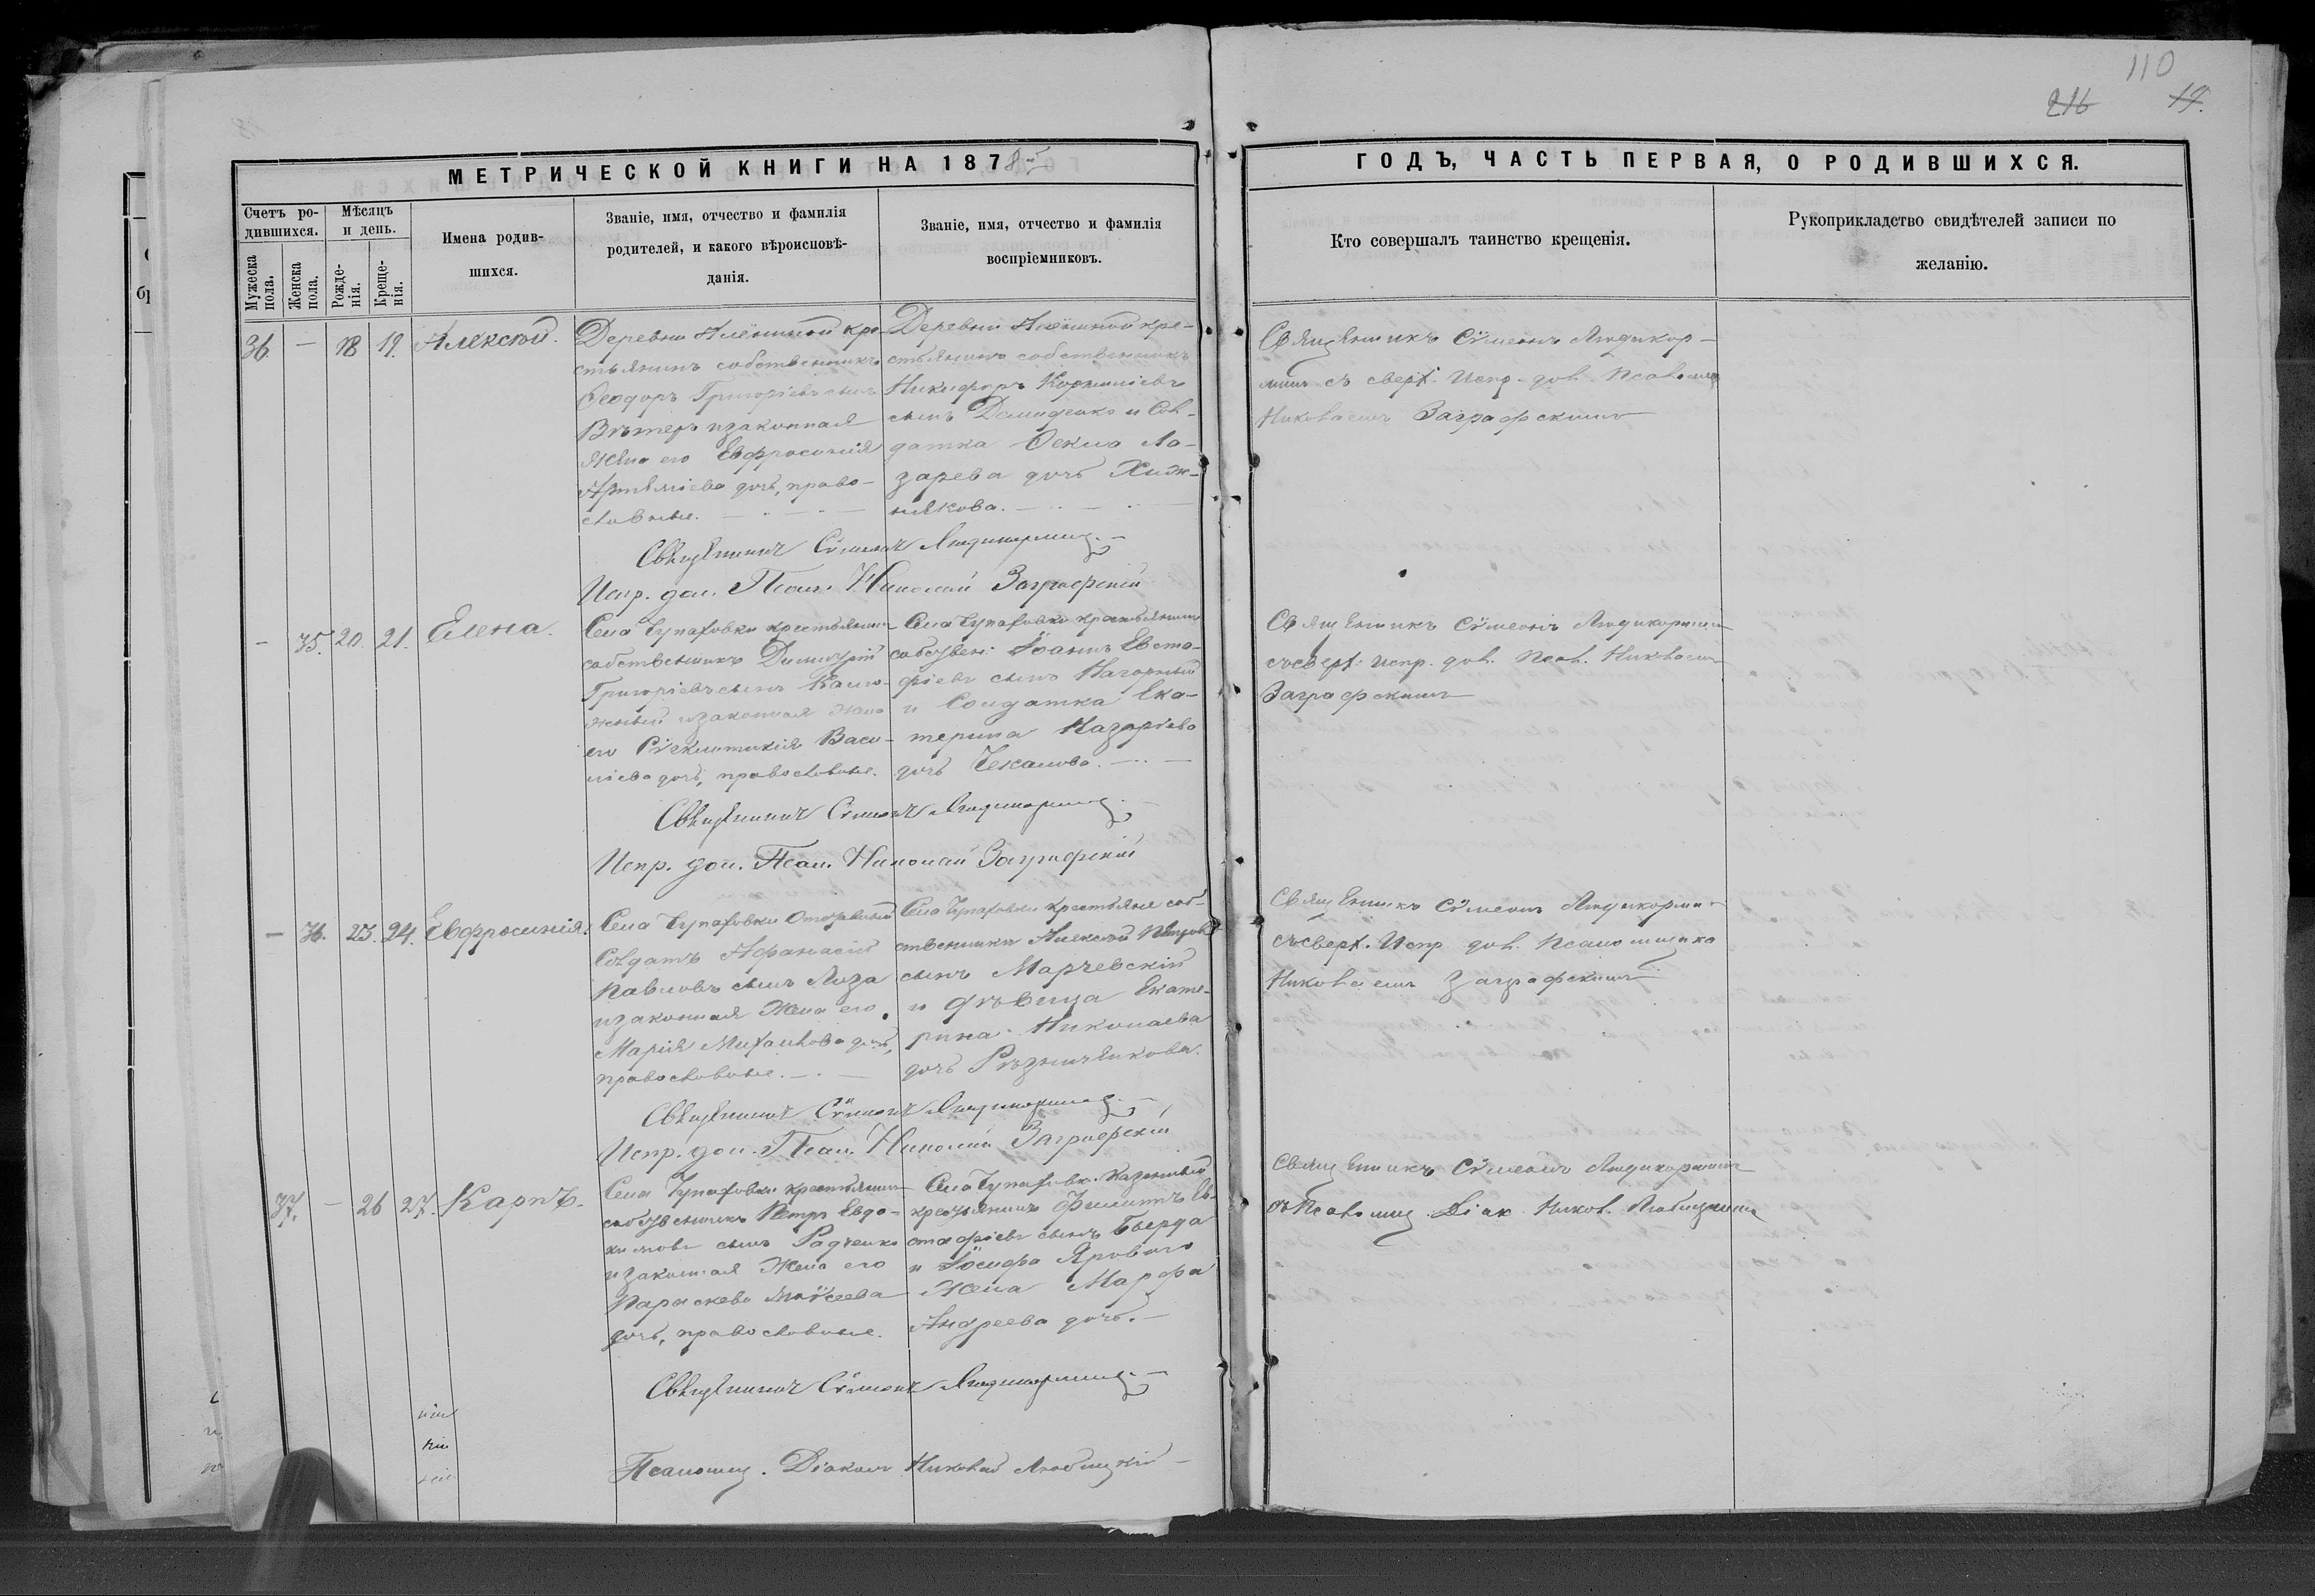 110
216 19.
МЕТРИЧЕСКОЙ КНИГИ НА 1878 5
ГОДЪ, ЧАСТЬ ПЕРВАЯ, О РОДИВШИХСЯ.
Счетъ ро-
дившихся.
Мѣсяцъ
и день.
Мужеска
пола.
Женска
пола.
Рожде-
нія.
Креще-
нія.
Имена родив-
шихся.
Званіе, имя, отчество и фамилія
родителей, и какого вѣроисповѣ-
данія.
Званіе, имя, отчество и фамилія
воспріемниковъ.
Кто совершалъ таинство крещенія.
Рукоприкладство свидѣтелей записи по
желанію.
36. — 18 19. Алексѣй.
Деревни Алёшиной кре-
стьянинъ собственникъ
Ѳеодоръ Григоріевъ сынъ
и законная
жена его Евфросинія
Артеміева дочь, право-
славные.
Деревни Алёшиной кре-
стьянинъ собственникъ
Никифоръ Корниліевъ
сынъ Демиденко и Сол-
датка Ѳекла Ла-
зарева дочь Хиж-
някова.
Священникъ Сѵмеонъ Людикор-
минъ съ сверх. Испр. дол. Псаломщ
Николаемъ Заграфскимъ
Священникъ Сѵмеонъ Людикорминъ
Испр. дол. Псал. Николай Заграфскій
— 35. 20. 21. Елена.
Села Чупаховки крестьянин
собственникъ Димитрій
Григоріевъ сынъ Калю-
жный и законная жена
его Сѵнклитикія Васи-
ліева дочь, православные.
Села Чупаховки крестьянинъ
собствен: Іоаннъ Евста-
фіевъ сынъ Нагорный
и Солдатка Ека-
терина Назаріева
дочь Чекалова.
Священникъ Сѵмеонъ Людикормин
съ сверх. испр. дол. Псал. Николаемъ
Заграфскимъ
Священникъ Сѵмеонъ Людикорминъ
Испр. дол. Псал. Николай Заграфскій
— 36. 23. 24. Евфросинія.
Села Чупаховки Отставный
Солдатъ Афанасій
Павловъ сынъ Лоза
и законная жена его
Марія Михайлова дочь,
православные.
Села Чупаховки крестьяне соб-
ственники Алексѣй Петровъ
сынъ Марчевскій
и дѣвица Екате-
рина Николаева
дочь Рѣзниченкова.
Священникъ Сѵмеонъ Людикормин
съ сверх. Испр дол. Псаломщика
Николаемъ Заграфскимъ
Священникъ Сѵмеонъ Людикорминъ
Испр. дол. Псал. Николай Заграфскій
37. — 26 27. Карпъ.
Села Чупаховки крестьянин
собственникъ Петръ Евдо-
кимовъ сынъ Радченко
и законная жена его
Параскева Моѵсеева
дочь, православные.
Села Чупаховк. Казенный
крестьянинъ Филиппъ Ев-
стафіевъ сынъ Бьерда
и Іосифа Яроваго
жена Марфа
Андреева дочь.
Священникъ Сѵмеонъ Людикормин
съ Псаломщ. Діак. Никол. Любицкимъ
Священникъ Сѵмеонъ Людикорминъ
Псаломщ. Діаконъ Николай Любицкій